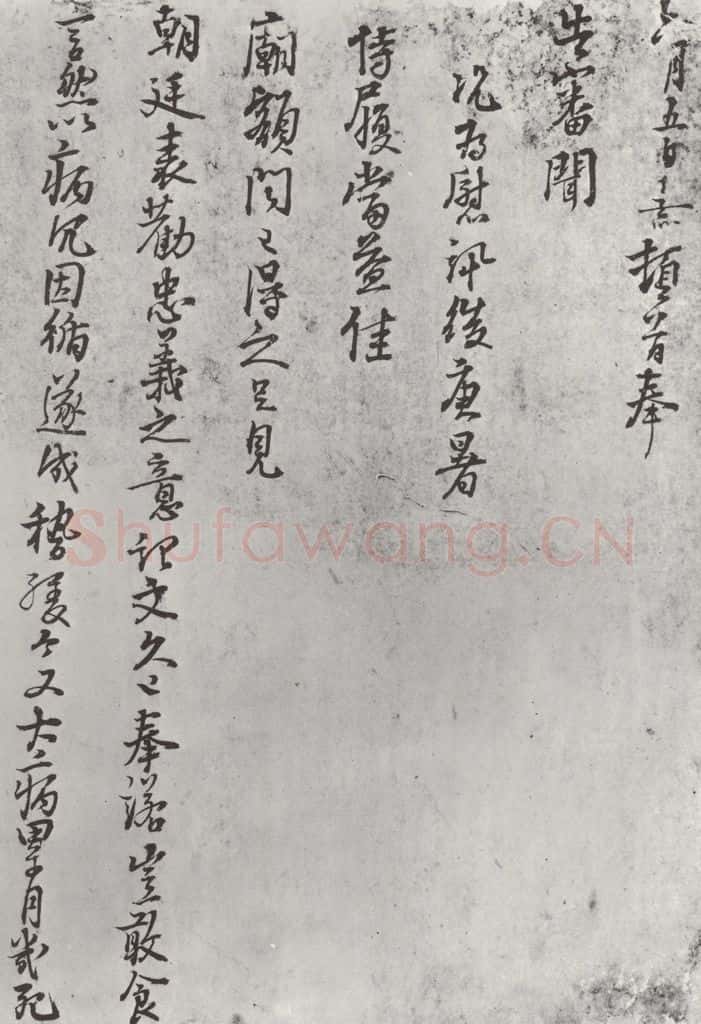 六月五日熹頓首奉
告審聞
况為慰訊後庚暑
侍履當益佳
廟額聞已得之足見
朝廷表勸忠義之意記文久已奉諾豈敢食
言然以病冗因循遂成稽緩今又大病累月幾死
Shufawang.CN